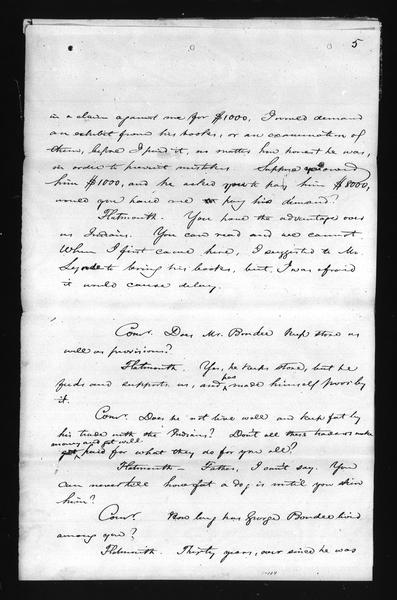 5
in a claim against me for $1000, I would demand
an exhibit from his books, or an examination of
them, before I paid it, no matter how honest he was,
in order to prevent mistakes. Suppose you owed
him $1000, and he asked you to pay him $8000,
would you have me pay his demand?
Flatmouth. You have the advantage over
us Indians. You can read and we cannot
When I first came here, I suggested to Mr.
to bring his books, but, I was afraid
it would cause delay.
Comr. Does Mr. Bondee keep store as
well as provisions?
Flatmouth. Yes, he keeps store, but he
feeds and supports us, and has made himself poor by
it.
Comr. Does he not live well and keep fat by
his trade with the Indians? Don't all these traders make
money and get well
paid for what they do for you all?
Flatmouth - Father, I can't say. You
can never tell how fat a dog is until you skin
him?
Comr. How long has George Bondee lived
among you?
Flatmouth. Thirty years, ever since he was